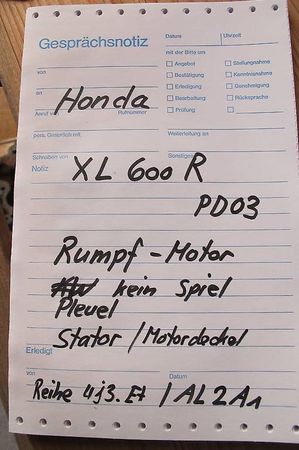 Gesprächsnotiz
Datum Uhrzeit
mit der Bitte um
von
Angebot Stellungnahme
Bestätigung Kenntnisnahme
an
Erledigung Genehmigung
Honda
Bearbeitung Rücksprache
Anruf Rufnummer
Prüfung
pers. Gespräch mit Weiterleitung an
Schreiben von Sonstiges
Notiz
XL 600 R
PD03
Rumpf - Motor
kein Spiel
Pleuel
Stator / Motordeckel
Erledigt
von Datum
Reihe 4j3. Et / AL2A1